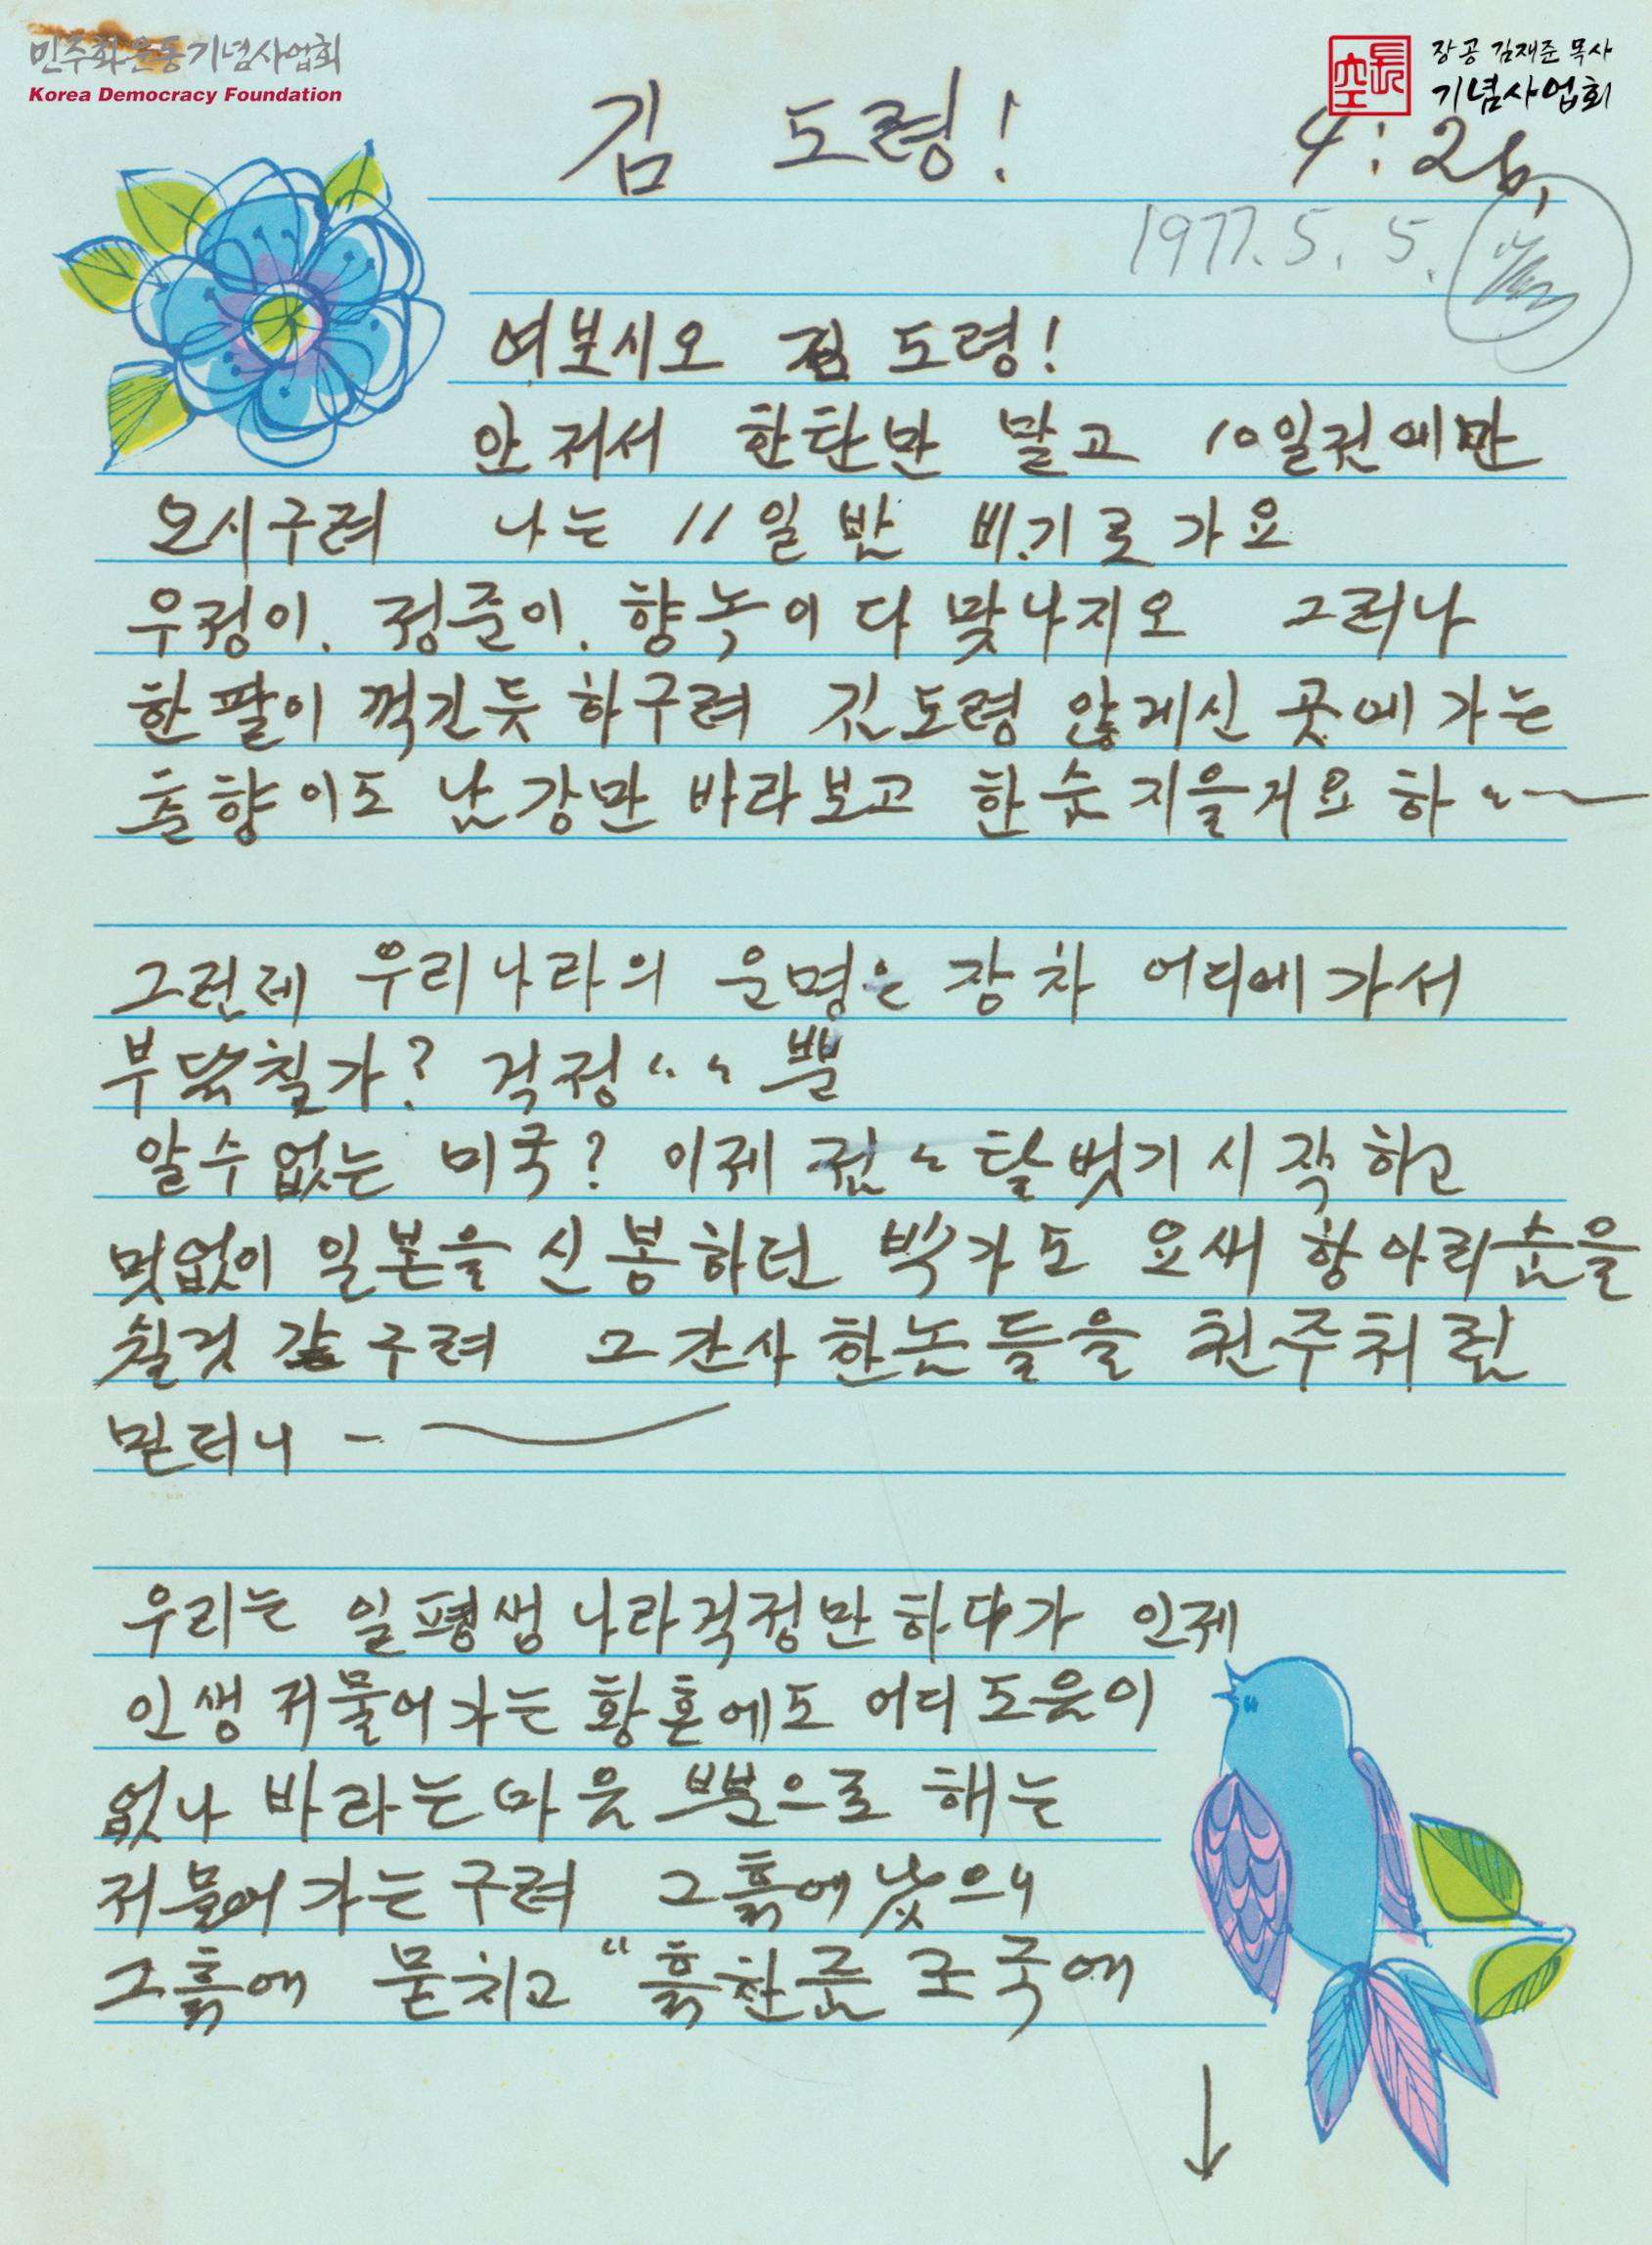 민주화운동기념사업회
Korea Democracy Foundation
장공 김재준 목사
기념사업회
김 도령! 4:26,
1977. 5. 5.
여보시오 김 도령!
안저서 한탄만 말고 10일전에만
오시구려 나는 11일 밤 비.기로 가요
우정이. 정준이. 향녹이 다 맞나지오 그러나
한팔이 꺽긴듯 하구려 김도령 않게신 곳에 가는
춘향이도 남강만 바라보고 한숨 지을거요 하〃
그런데 우리나라의 운명은 장차 어디에가서
부닥칠가? 걱정〃〃뿐
알수없는 미국? 이제 점〃 탈벗기 시작하고
멋없이 일본을 신봉하던 박가도 요새 항아리숨을
쉴것 갈구려 그 간사한놈들을 천주처럼
믿더니 -
우리는 일평생 나라걱정만하다가 인제
인생 저물어가는 황혼에도 어디 도움이
없나 바라는 마음 뿐으로 해는
저물어가는구려 그흙에 낫으니
그흙에 묻치고 "흙한줌 조국에